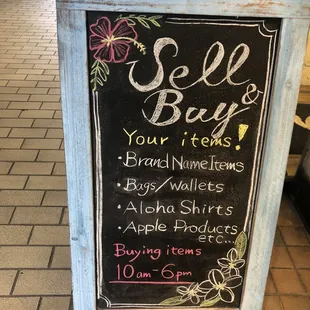 Sell &
Buy
Your items!
• Brand Name Items
• Bags/Wallets
• Aloha Shirts
• Apple Products
etc...
Buying items
10am-6pm